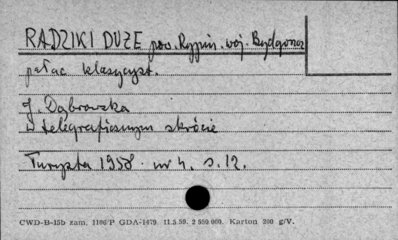 RADZIKI DUŻE pow. Rypin. woj. Bydgoszcz
pałac klasycyst.
J. Dąbrowska
w telegraficznym skrócie
Turysta 1958 nr 4. s. 12.
CWD-B-15b zam. 1106/P GDA-1479. 11.5.59. 2 550 000. Karton 350 g/V.